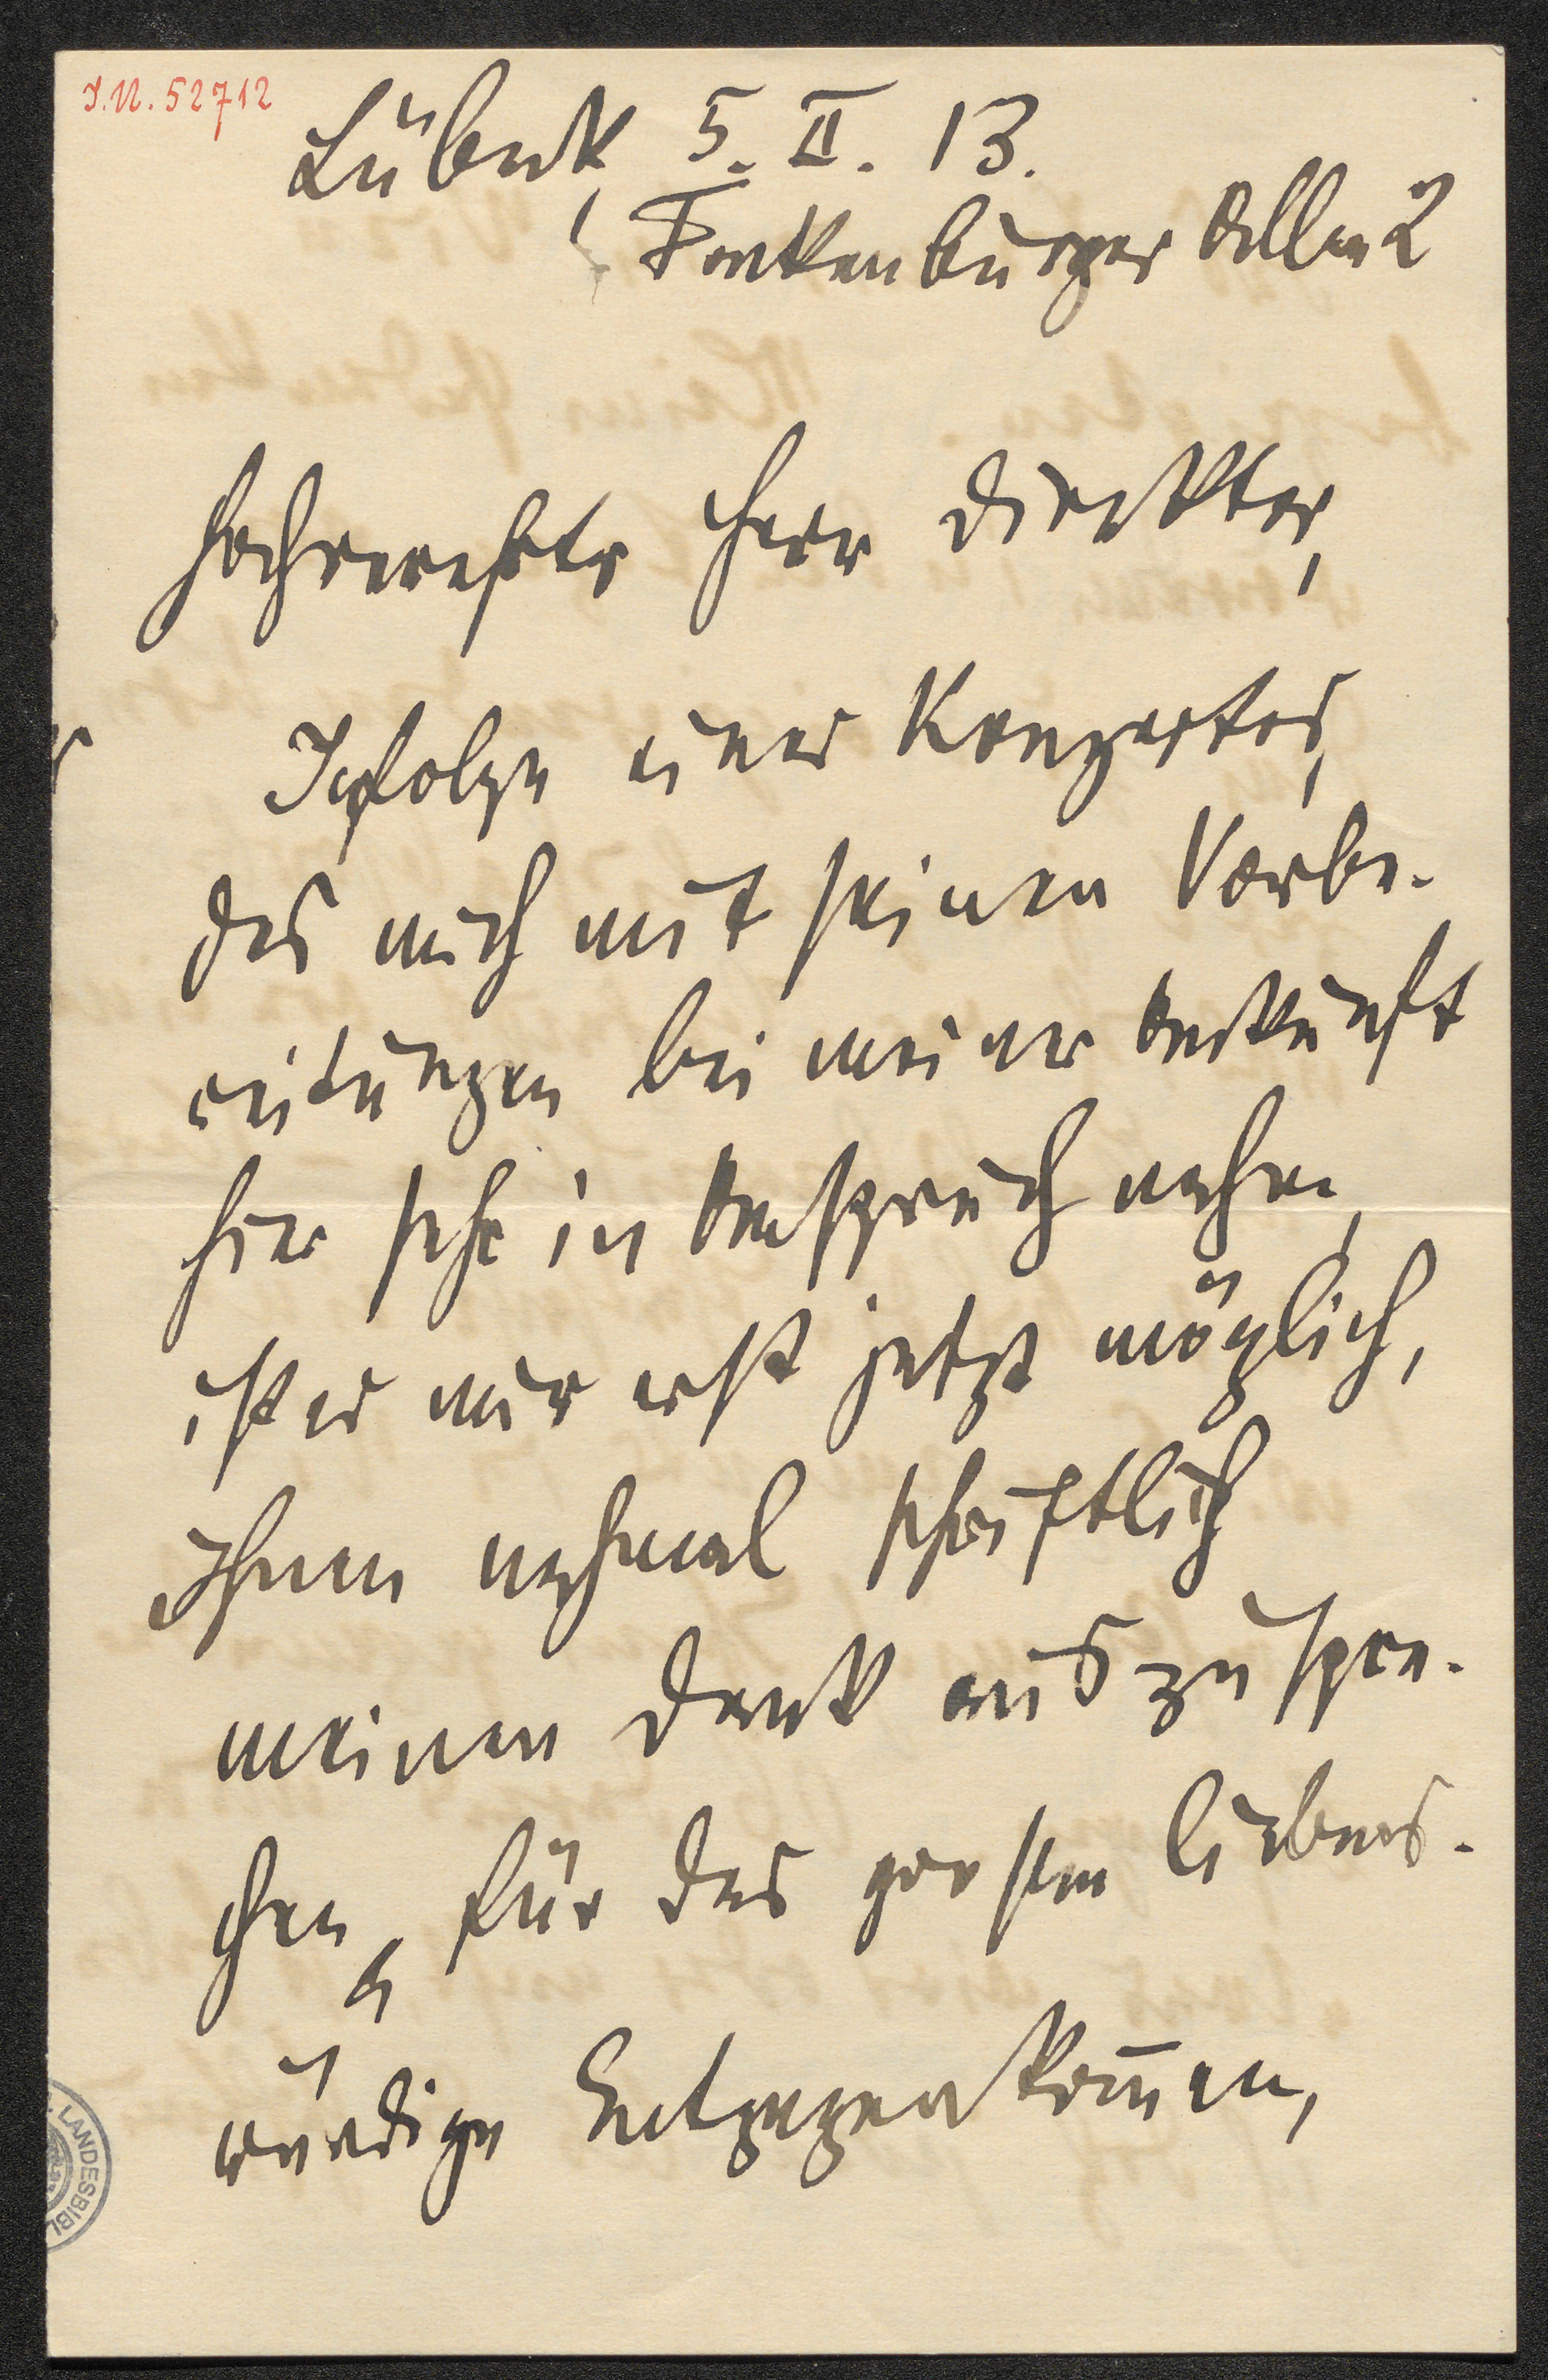 I.N. 52712
Lübeck, 5. II. 13.
Fackenburger Allee 2
Hochverehrter Herr Direktor,
Infolge eines Konzertes,
das mich mit seinen Vorbe-
reitungen bei meiner Ankunft
hier sehr in Anspruch nahm,
ist es mir erst jetzt möglich,
Ihnen nochmal schriftlich
meinen Dank auszuspre-
chen für das grossen liebens-
würdige Entgegenkom̄en,
LANDESBIBL